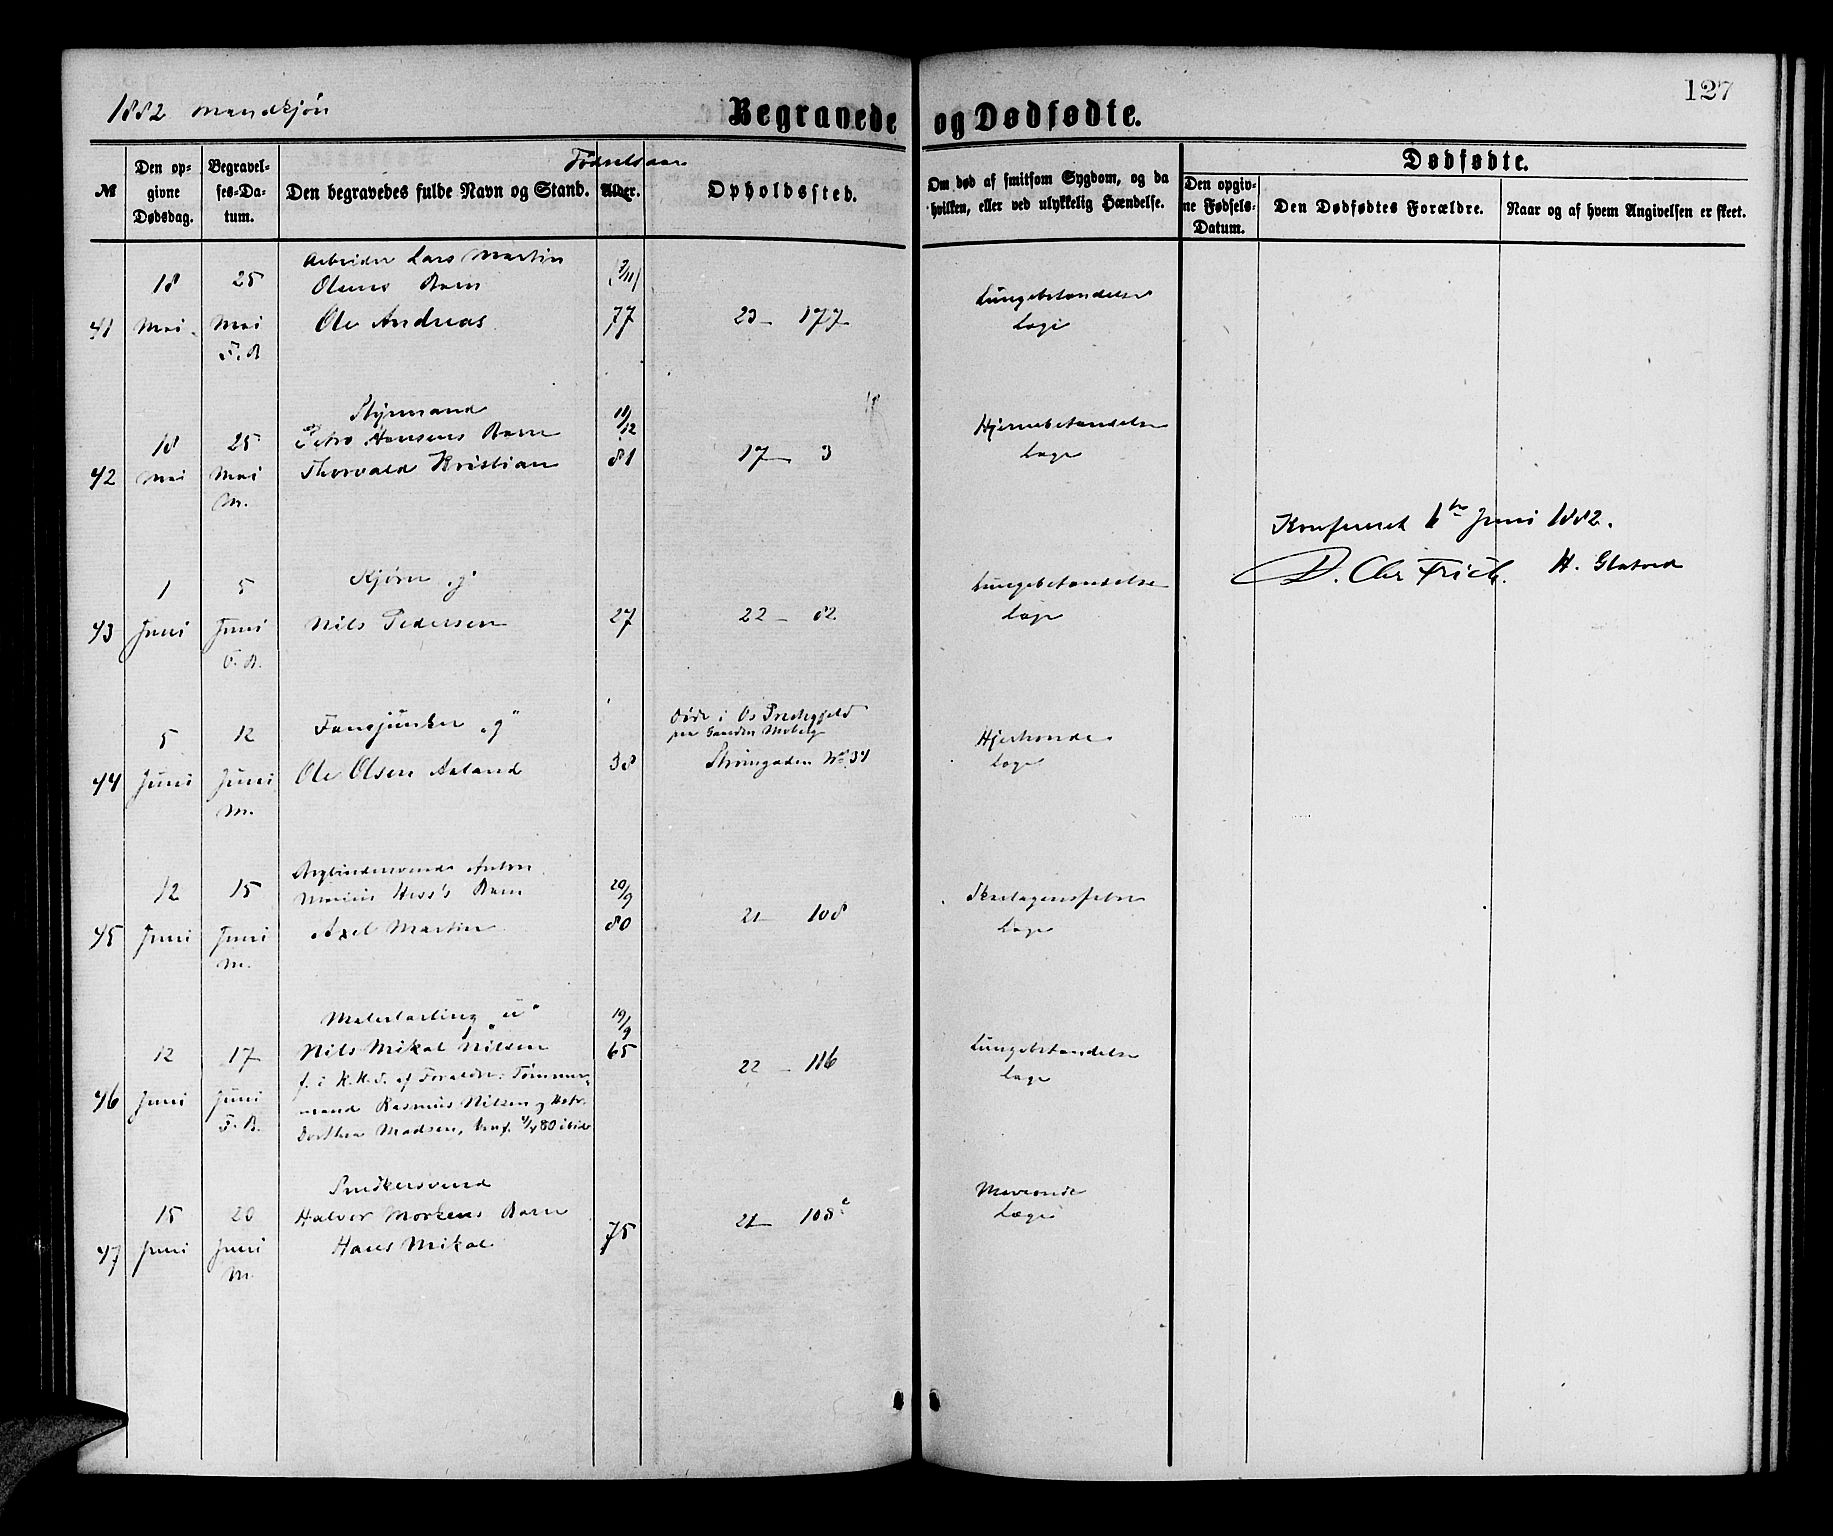 127
1882 Mandkjøn
Begravede og Dødfødte.
№
Den opgivne Dødsdag.
Begravelses-Datum.
Den begravedes fulde Navn og Stand.
Fødselsaar
Alder.
Opholdssted.
Om død af smitsom Sygdom, og da hvilken, eller ved ulykkelig Hændelse.
Dødfødte.
Den opgivne Fødsels-Datum.
Den Dødfødtes Forældre.
Naar og af hvem Angivelsen er skeet.
Arbeider Lars Martin
18 25 Olsens Barn (3/11)
41 Mai Mai Ole Andreas 77 23 - 177 Lungebetændelse
F. B. Læge
Styrmand 11/12
18 25 Petro Hansens Barn Hjernebetændelse
42 Mai Mai Thorvald Kristian 81 17 - 3 Læge
M.
Konfereret 1ste Juni 1882.
D. Chr Frich. H. Glatved
1 5 Kjører „g“ Lungebetændelse
43 Juni Juni Nils Pedersen 27 22 - 82 Læge
F. B.
5 12 Fansjunker „g“ Døde i Os Prestegjeld
paa Gaarden Moberg Hjerteonde
44 Juni Juni Ole Olsen Aaland 38 Strømgaden No 34 Læge
M.
Bogbindersvend Anton
12 15 Marius Hess's Barn 20/9 Skarlagensfeber
45 Juni Juni Axel Martin 80 21 - 108 Læge
M.
Malerlærling „u“ 19/9
12 17 Nils Mikal Nilsen 65 22 - 116 Lungebetændelse
46 Juni Juni f. i K. K. S. af Forældre: Tømmer- Læge
F. B. mand Rasmus Nilsen og Hstr.
Dorthea Madsen, konf. 4/4 80 ibid
Snedkersvend
15 20 Halvor Morkens Barn 21 - 108 c Maveonde
47 Juni Juni Hans Mikal 75 Læge
M.